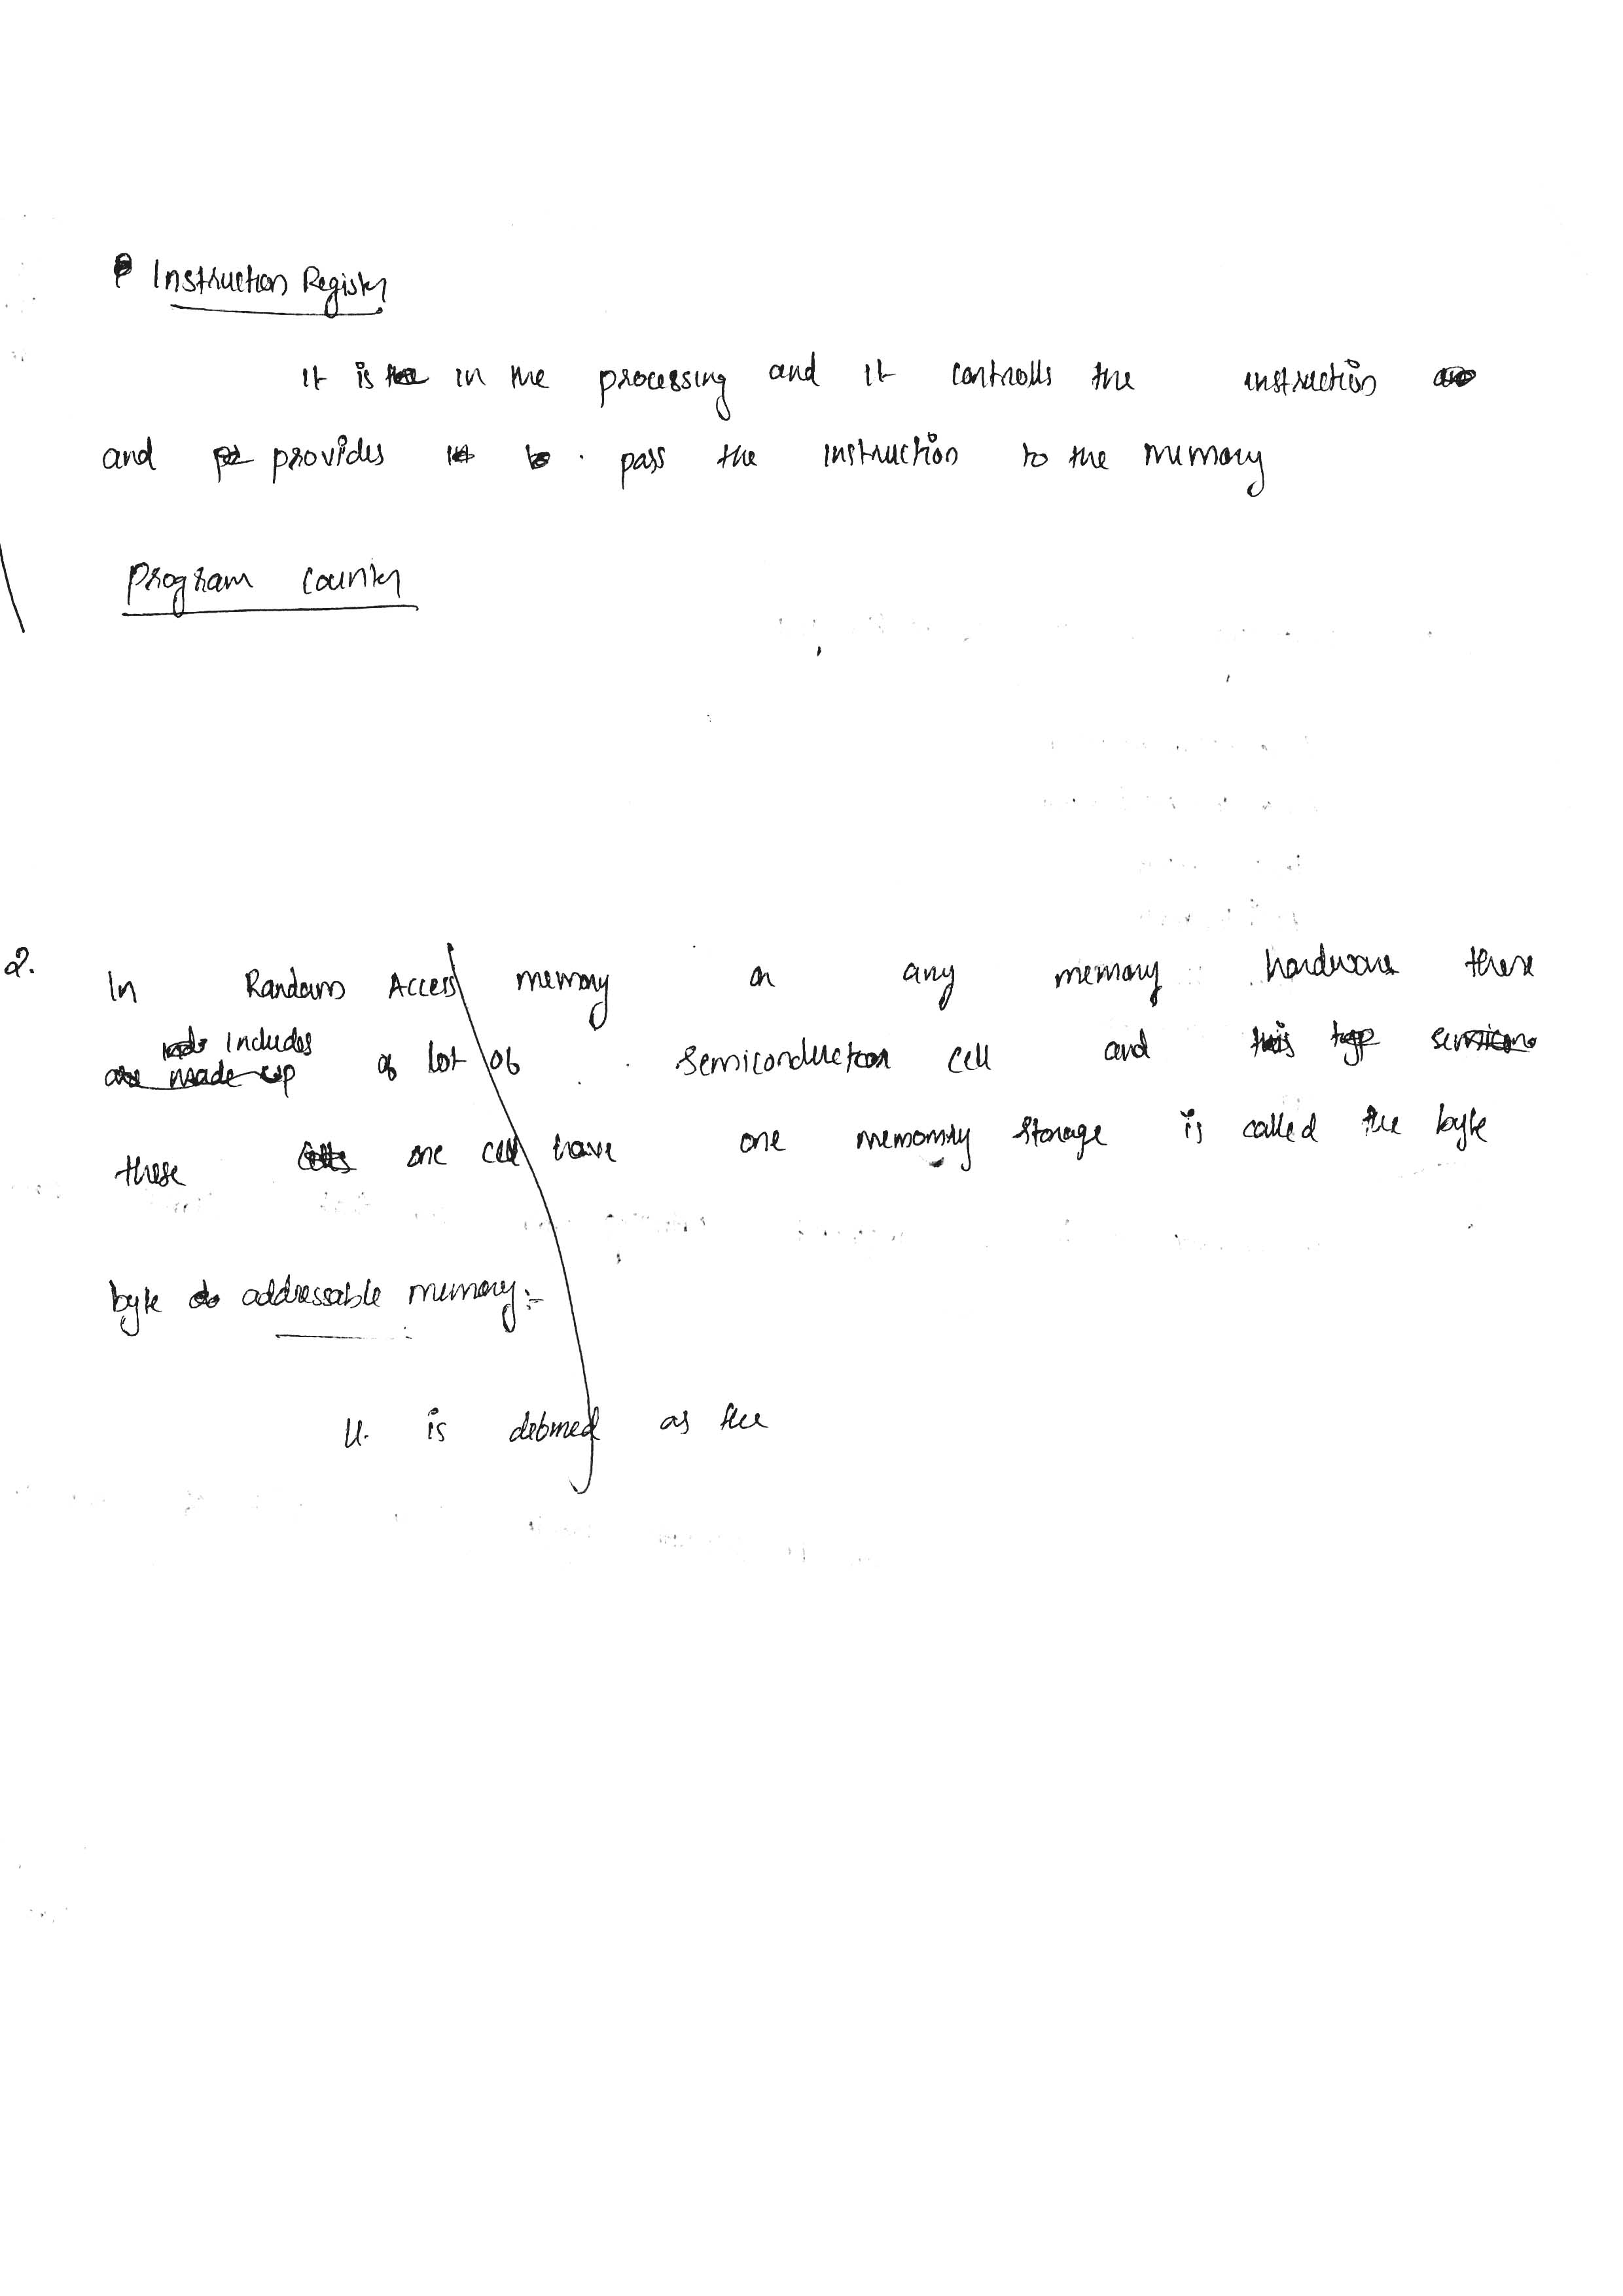 Instruction Register
It is in the processing and it controlls the instruction
and provides pass the instruction to the memory
Program Counter
2. In Random Access memory or any memory hardware there
includes
are made up of lot of semiconductor cell and this typ
these cells one cell have one memomry storage is called the byte
byte addressable memory:-
It is defined as the